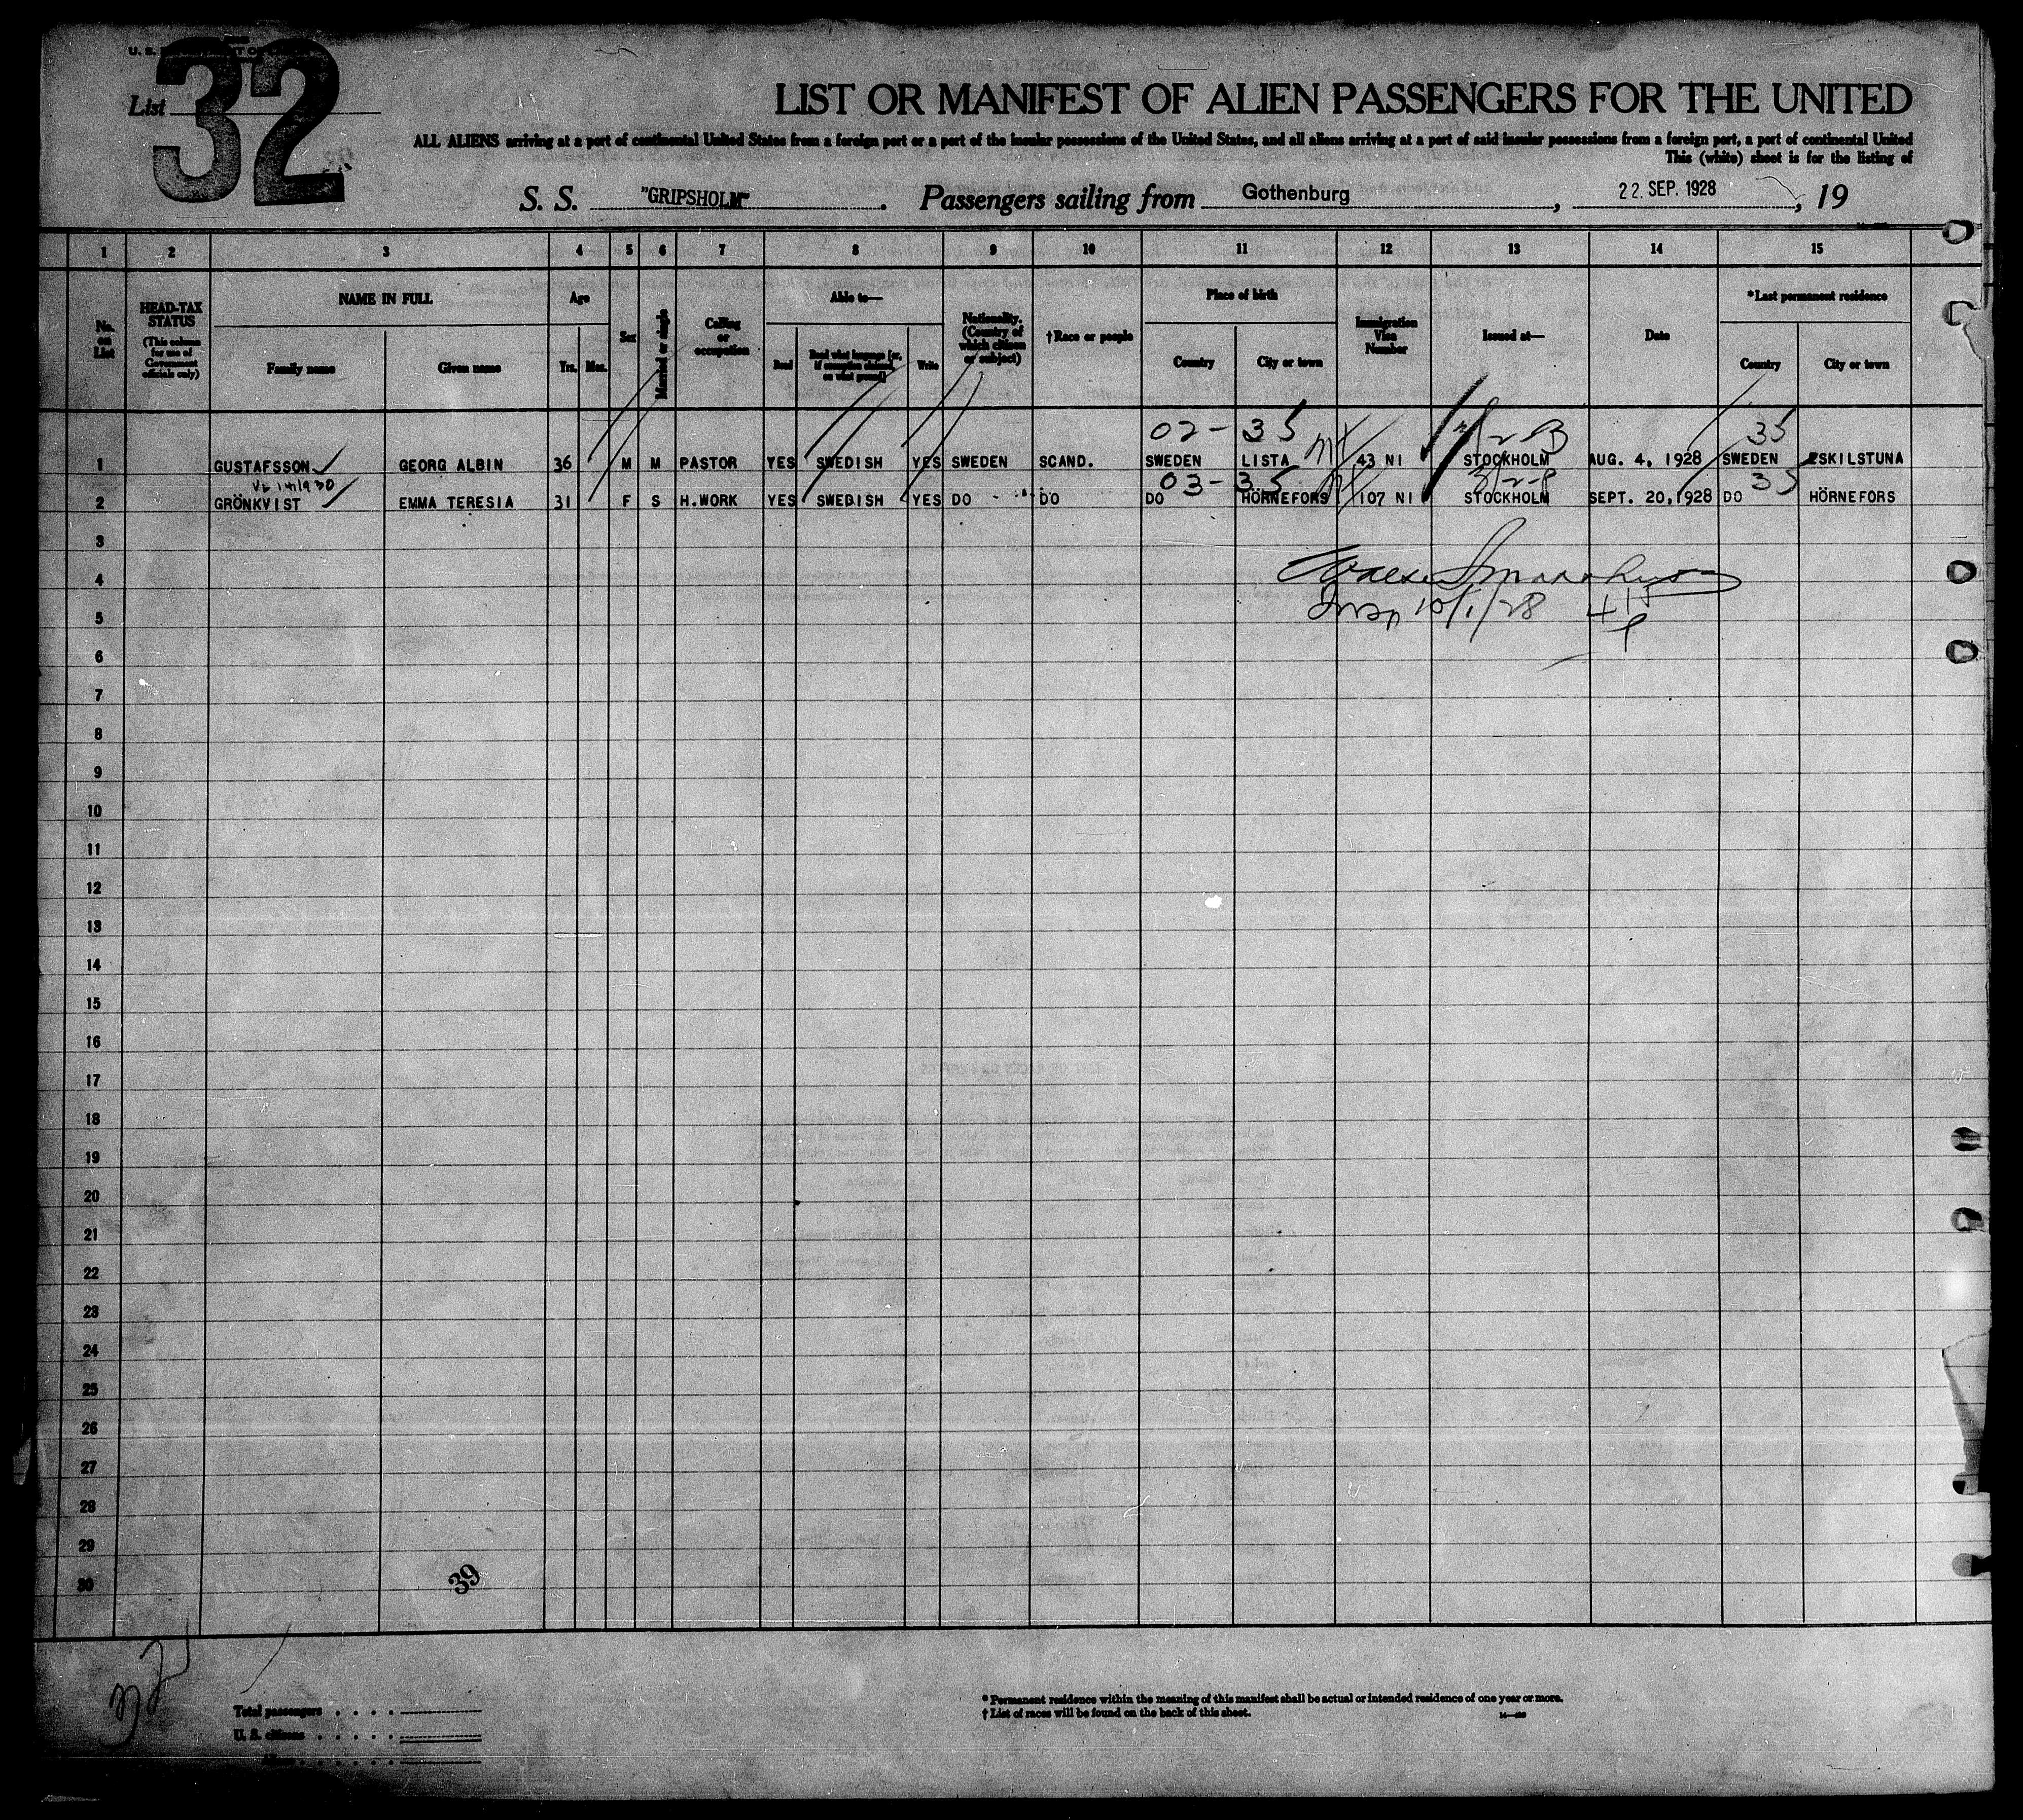 32
List
LIST OR MANIFEST OF ALIEN PASSENGERS FOR THE UNITED
ALL ALIENS arriving at a port of continental United States from a foreign port or a port of the insular possessions of the United States, and all aliens arriving at a port of said insular possessions from a foreign port, a port of continental United
This (white) sheet is for the listing of
S. S. "GRIPSHOLM". Passengers sailing from Gothenburg, 22. SEP. 1928, 19
1 2 3 4 5 6 7 8 9 10 11 12 13 14 15
No. on List
HEAD-TAX STATUS (This column for use of Government officials only)
NAME IN FULL
Family name Given name
Age
Yrs. Mos.
Sex
Married or single
Calling or occupation
Able to—
Read Read what language [or, if exemption claimed, on what ground] Write
Nationality. (Country of which citizen or subject)
†Race or people
Place of birth
Country City or town
Immigration Visa Number
Issued at—
Date
*Last permanent residence
Country City or town
02- 35 35
1 GUSTAFSSON GEORG ALBIN 36 M M PASTOR YES SWEDISH YES SWEDEN SCAND. SWEDEN LISTA 43 NI STOCKHOLM AUG. 4, 1928 SWEDEN ESKILSTUNA
03- 35 35
2 GRÖNKVIST EMMA TERESIA 31 F S H.WORK YES SWEDISH YES DO DO DO HÖRNEFORS 107 NI STOCKHOLM SEPT. 20,1928 DO HÖRNEFORS
3
4
10/1/28
5
6
7
8
9
10
11
12
13
14
15
16
17
18
19
20
21
22
23
24
25
26
27
28
29
30
39
Total passengers
U. S. citizens
* Permanent residence within the meaning of this manifest shall be actual or intended residence of one year or more.
† List of races will be found on the back of this sheet.